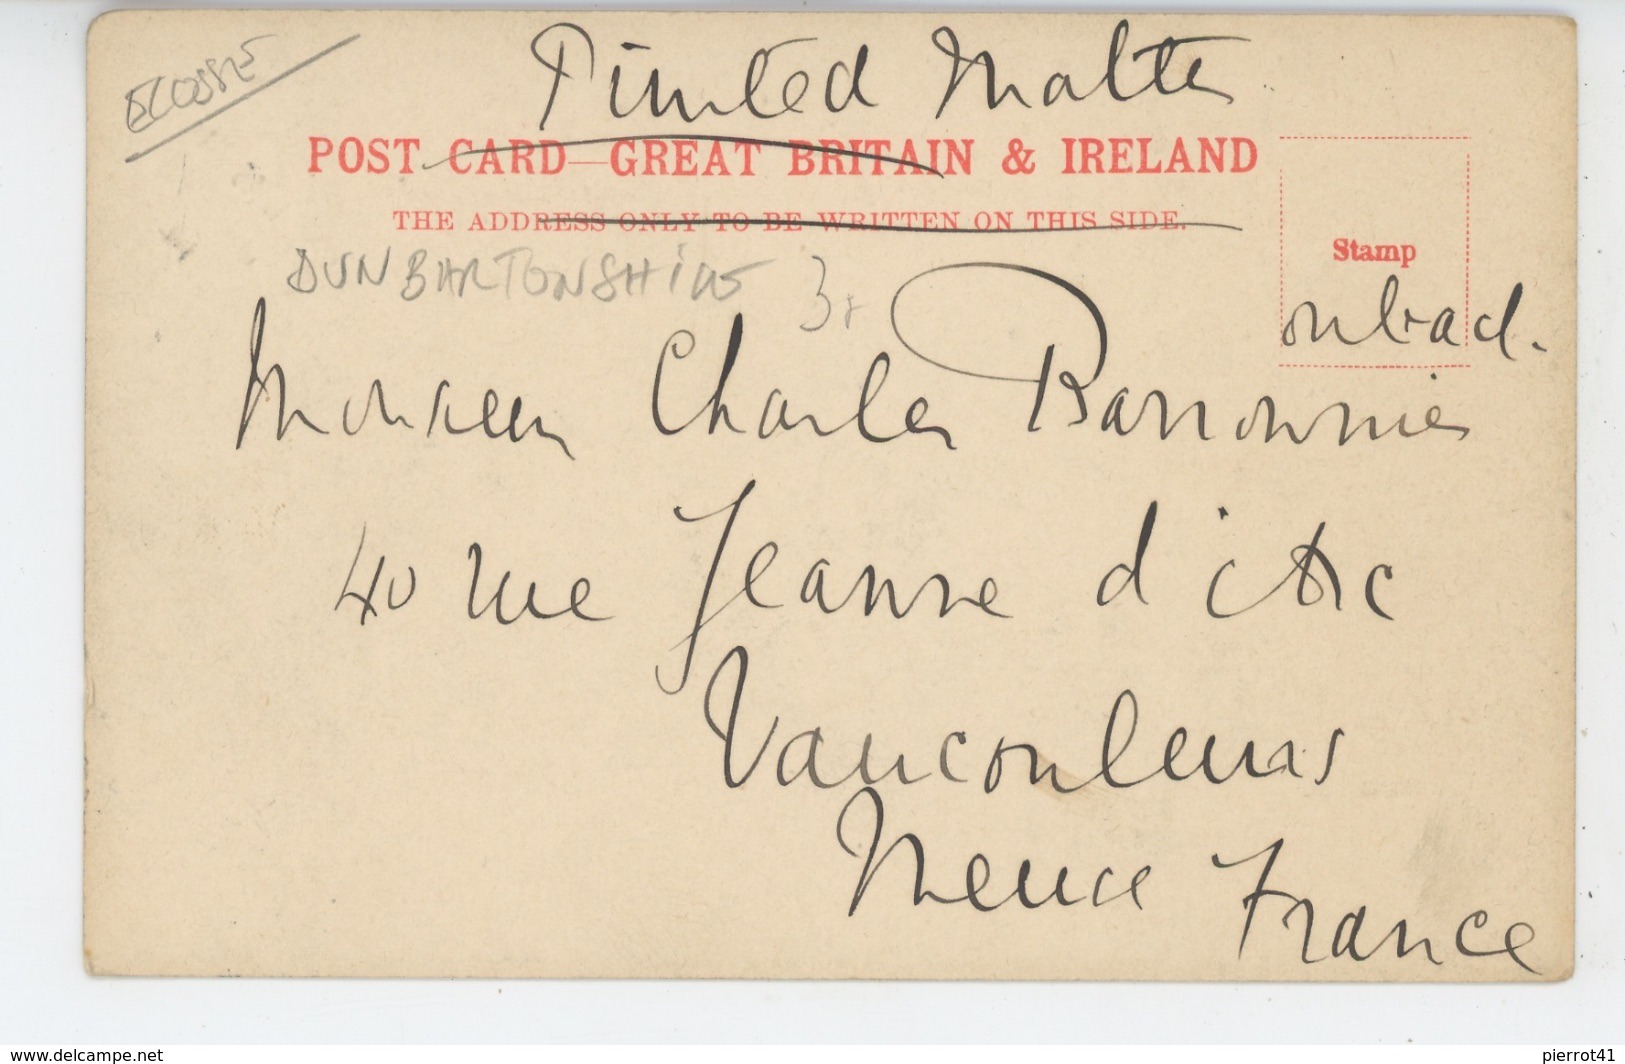 ECOSSE
Printed Matter
POST CARD—GREAT BRITAIN & IRELAND
THE ADDRESS ONLY TO BE WRITTEN ON THIS SIDE.
Stamp
DUNBARTONSHIRE
on back.
Monsieur Charles Barronnier
40 rue Jeanne d'Arc
Vaucouleurs
Meuse France
www.delcampe.net
pierrot41